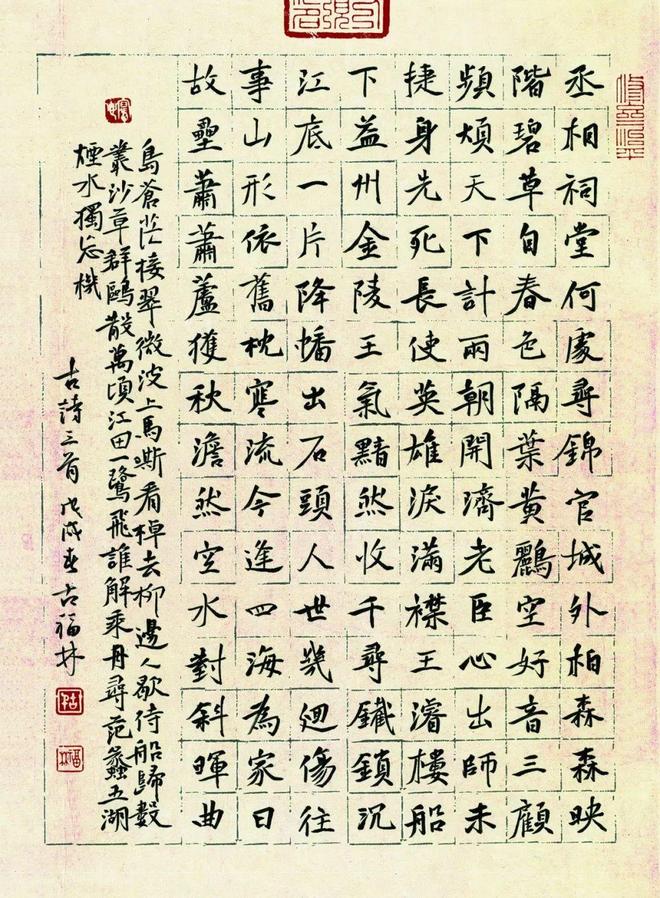 丞相祠堂何處尋錦官城外柏森森映
階碧草自春色隔葉黃鸝空好音三顧
頻煩天下計兩朝開濟老臣心出師未
捷身先死長使英雄淚滿襟王濬樓船
下益州金陵王氣黯然收千尋鐵鎖沉
江底一片降幡出石頭人世幾迴傷往
事山形依舊枕寒流今逢四海為家日
故壘蕭蕭蘆獲秋澹然空水對斜暉曲
島蒼茫接翠微波上馬嘶看棹去柳邊人歇待船歸數
叢沙草群鷗散萬頃江田一鷺飛誰解乘舟尋范蠡五湖
煙水獨忘機
古詩三首 戊戌春 古福林
修齊治平